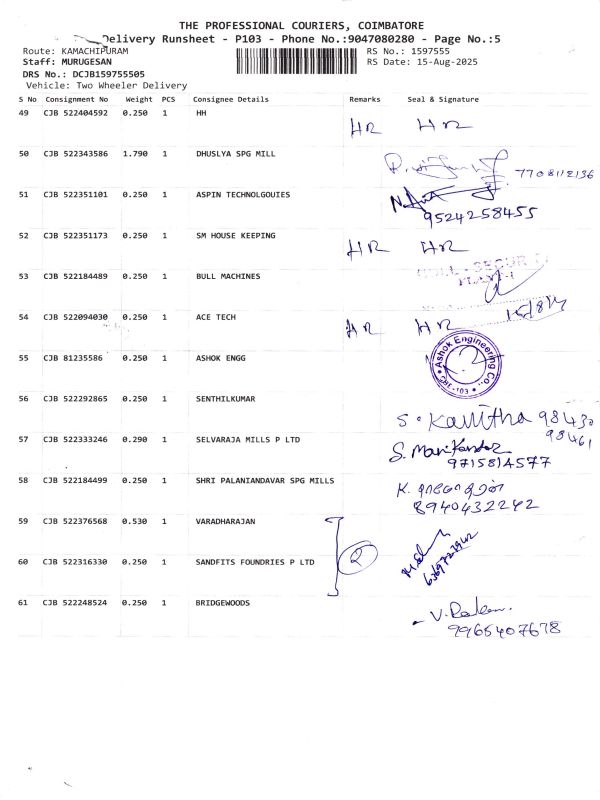 THE PROFESSIONAL COURIERS, COIMBATORE
Delivery Runsheet - P103 - Phone No.:9047080280 - Page No.:5
Route: KAMACHIPURAM
RS No.: 1597555
Staff: MURUGESAN
RS Date: 15-Aug-2025
DRS No.: DCJB159755505
Vehicle: Two Wheeler Delivery
S No Consignment No Weight PCS Consignee Details Remarks Seal & Signature
49 CJB 522404592 0.250 1 HH
HR HR
50 CJB 522343586 1.790 1 DHUSLYA SPG MILL
7708112136
51 CJB 522351101 0.250 1 ASPIN TECHNOLGOUIES
9524258455
52 CJB 522351173 0.250 1 SM HOUSE KEEPING
HR HR
53 CJB 522184489 0.250 1 BULL MACHINES
54 CJB 522094030 0.250 1 ACE TECH
HR HR
55 CJB 81235586 0.250 1 ASHOK ENGG
Ashok Engineering Co.
56 CJB 522292865 0.250 1 SENTHILKUMAR
S. Kavitha 98430
98461
57 CJB 522333246 0.290 1 SELVARAJA MILLS P LTD
S. Manikandan
9715814577
58 CJB 522184499 0.250 1 SHRI PALANIANDAVAR SPG MILLS
8940432242
59 CJB 522376568 0.530 1 VARADHARAJAN
2
60 CJB 522316330 0.250 1 SANDFITS FOUNDRIES P LTD
61 CJB 522248524 0.250 1 BRIDGEWOODS
9965407678